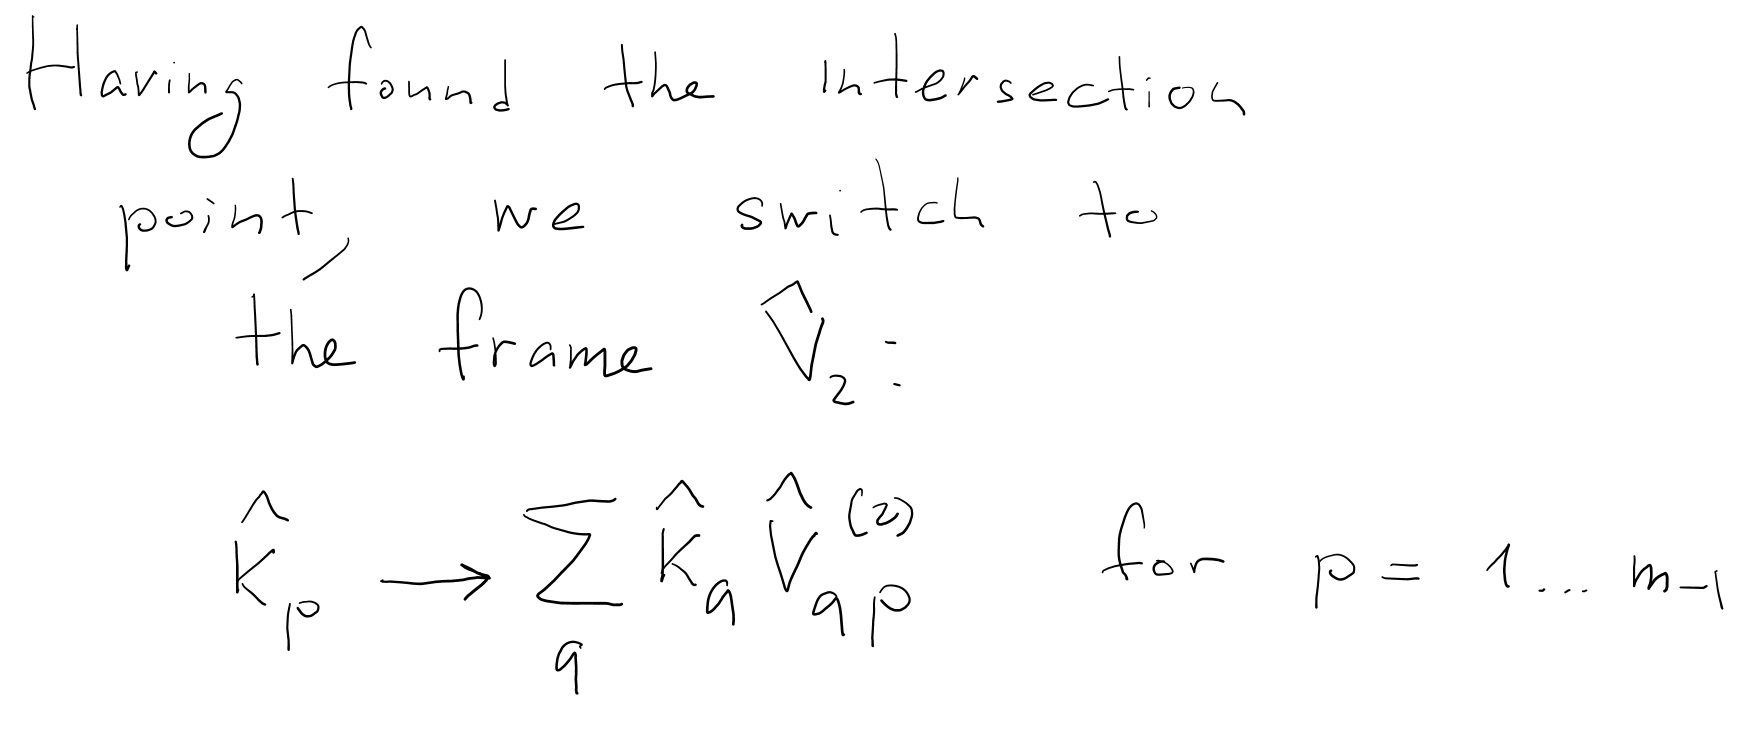 Having found the intersection
point, we switch to
the frame V̂₂:
K̂_p → ∑_q K̂_q V̂_qp^(2) for p = 1... m-1